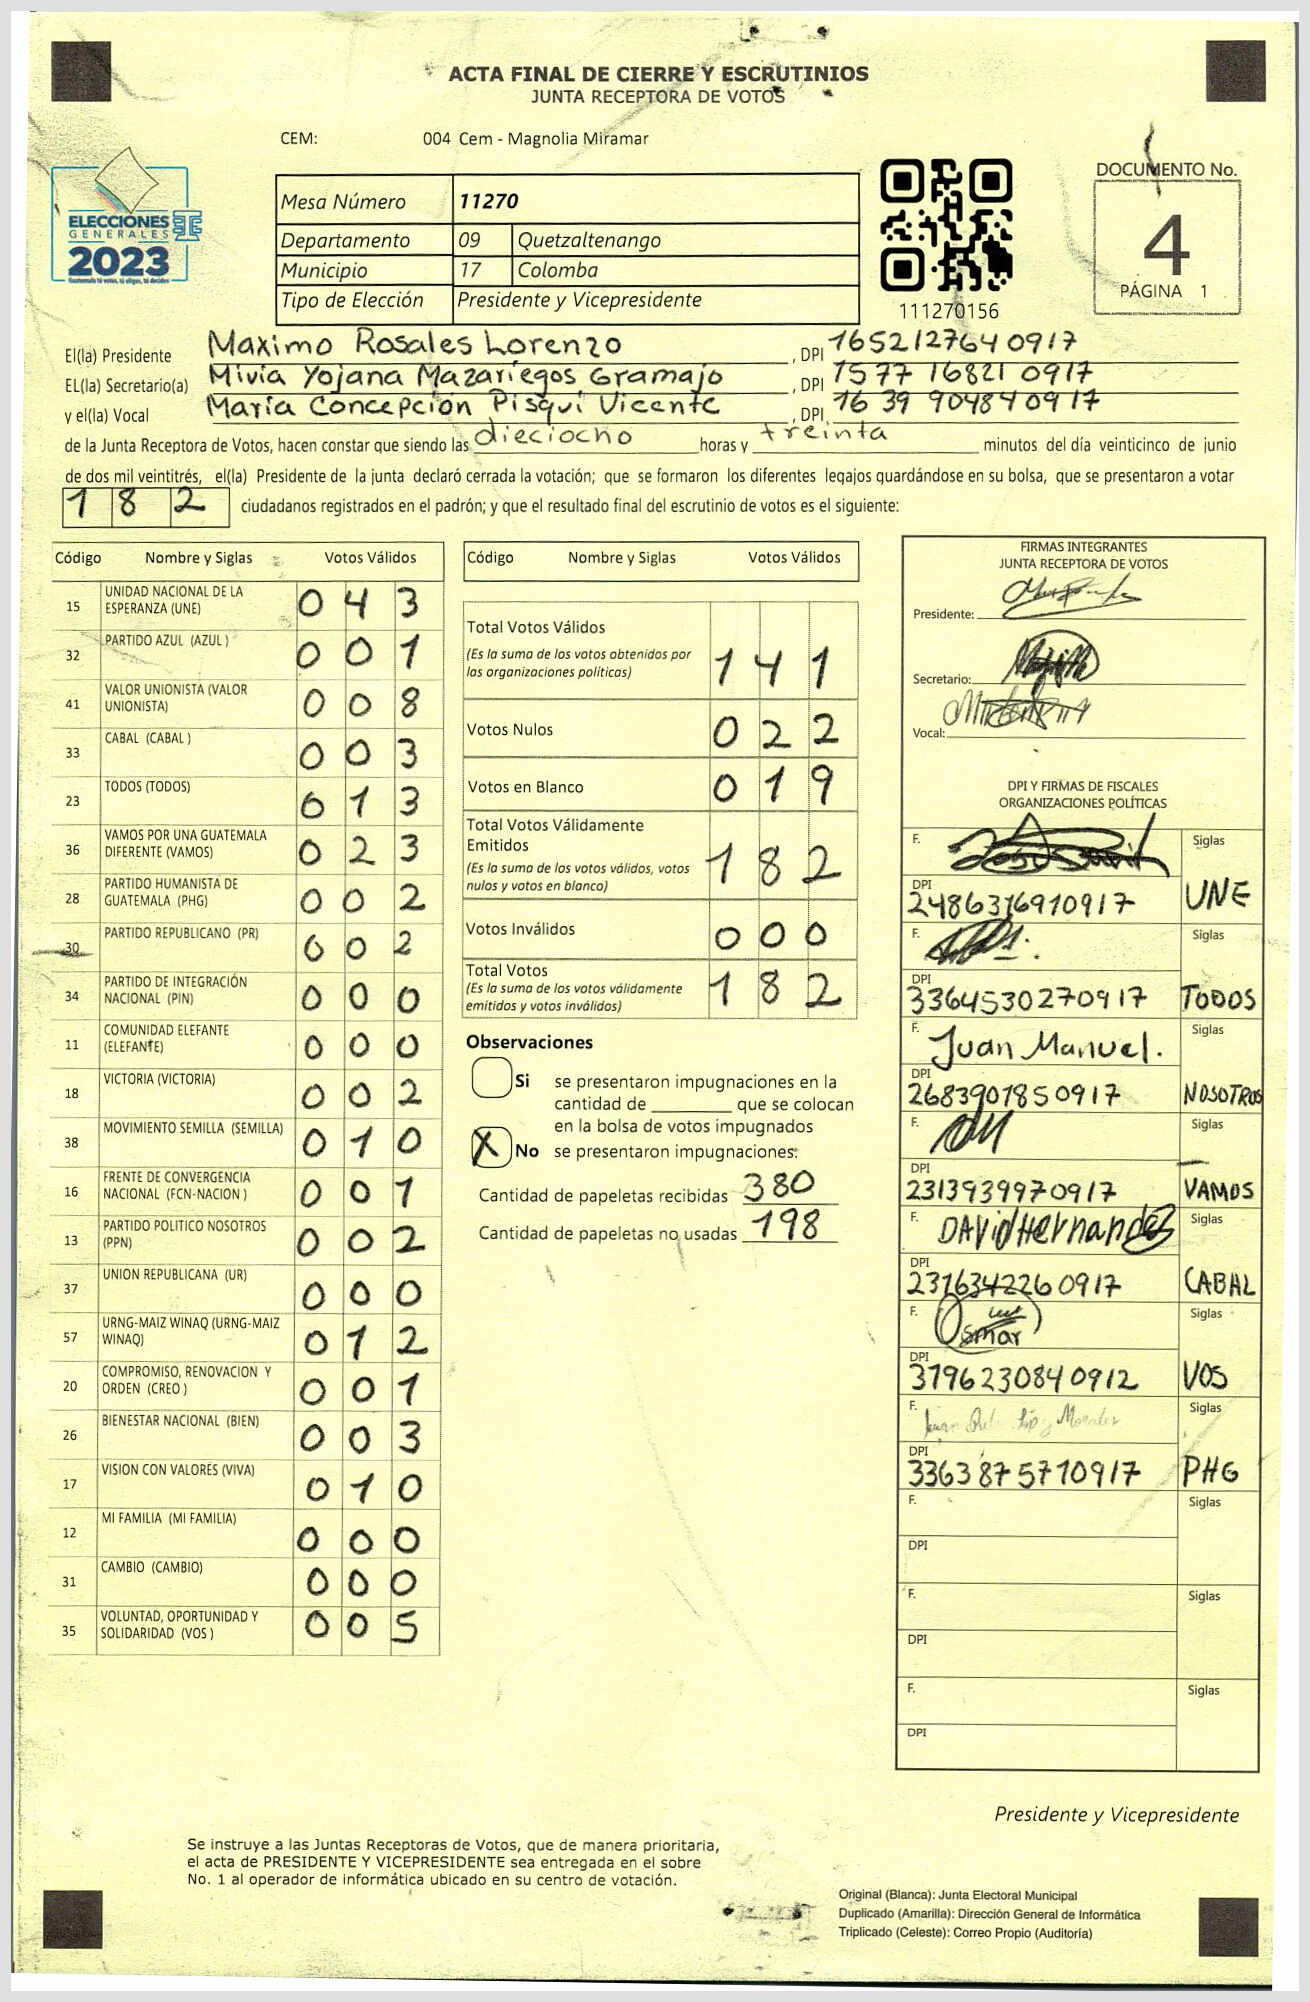 ACTA FINAL DE CIERRE Y ESCRUTINIOS
JUNTA RECEPTORA DE VOTOS
CEM: 004 Cem - Magnolia Miramar
ELECCIONES
GENERALES
2023
Mesa Número 11270
Departamento 09 Quetzaltenango
Municipio 17 Colomba
Tipo de Elección Presidente y Vicepresidente
111270156
DOCUMENTO No.
4
PÁGINA 1
El(la) Presidente Maximo Rosales Lorenzo, DPI 1652127640917
EL(la) Secretario(a) Mivia Yojana Mazariegos Gramajo, DPI 1577 16821 0917
y el(la) Vocal María Concepción Pisquí Vicente, DPI 16 39 90484 0917
de la Junta Receptora de Votos, hacen constar que siendo las dieciocho horas y treinta minutos del día veinticinco de junio
de dos mil veintitrés, el(la) Presidente de la junta declaró cerrada la votación; que se formaron los diferentes legajos guardándose en su bolsa, que se presentaron a votar
182 ciudadanos registrados en el padrón; y que el resultado final del escrutinio de votos es el siguiente:
Código Nombre y Siglas Votos Válidos
15 UNIDAD NACIONAL DE LA ESPERANZA (UNE) 043
32 PARTIDO AZUL (AZUL ) 001
41 VALOR UNIONISTA (VALOR UNIONISTA) 008
33 CABAL (CABAL ) 003
23 TODOS (TODOS) 013
36 VAMOS POR UNA GUATEMALA DIFERENTE (VAMOS) 023
28 PARTIDO HUMANISTA DE GUATEMALA (PHG) 002
30 PARTIDO REPUBLICANO (PR) 002
34 PARTIDO DE INTEGRACIÓN NACIONAL (PIN) 000
11 COMUNIDAD ELEFANTE (ELEFANTE) 000
18 VICTORIA (VICTORIA) 002
38 MOVIMIENTO SEMILLA (SEMILLA) 010
16 FRENTE DE CONVERGENCIA NACIONAL (FCN-NACION ) 001
13 PARTIDO POLITICO NOSOTROS (PPN) 002
37 UNION REPUBLICANA (UR) 000
57 URNG-MAIZ WINAQ (URNG-MAIZ WINAQ) 012
20 COMPROMISO, RENOVACION Y ORDEN (CREO ) 001
26 BIENESTAR NACIONAL (BIEN) 003
17 VISION CON VALORES (VIVA) 010
12 MI FAMILIA (MI FAMILIA) 000
31 CAMBIO (CAMBIO) 000
35 VOLUNTAD, OPORTUNIDAD Y SOLIDARIDAD (VOS ) 005
Código Nombre y Siglas Votos Válidos
Total Votos Válidos 141
(Es la suma de los votos obtenidos por
las organizaciones políticas)
Votos Nulos 022
Votos en Blanco 019
Total Votos Válidamente
Emitidos 182
(Es la suma de los votos válidos, votos
nulos y votos en blanco)
Votos Inválidos 000
Total Votos 182
(Es la suma de los votos válidamente
emitidos y votos inválidos)
Observaciones
Si se presentaron impugnaciones en la
cantidad de ________ que se colocan
en la bolsa de votos impugnados
X No se presentaron impugnaciones.
Cantidad de papeletas recibidas 380
Cantidad de papeletas no usadas 198
FIRMAS INTEGRANTES
JUNTA RECEPTORA DE VOTOS
Presidente:
Secretario:
Vocal:
DPI Y FIRMAS DE FISCALES
ORGANIZACIONES POLÍTICAS
F. Siglas
DPI 2486316910917 UNE
F. Siglas
DPI 3364530270917 TODOS
F. Juan Manuel. Siglas
DPI 2683901850917 NOSOTROS
F. Siglas
DPI 2313939970917 VAMOS
F. DAVid Hernandez Siglas
DPI 2316342260917 CABAL
F. Osmar Siglas
DPI 3796230840912 VOS
F. Siglas
DPI 3363875710917 PHG
F. Siglas
DPI
F. Siglas
DPI
F. Siglas
DPI
Presidente y Vicepresidente
Se instruye a las Juntas Receptoras de Votos, que de manera prioritaria,
el acta de PRESIDENTE Y VICEPRESIDENTE sea entregada en el sobre
No. 1 al operador de informática ubicado en su centro de votación.
Original (Blanca): Junta Electoral Municipal
Duplicado (Amarilla): Dirección General de Informática
Triplicado (Celeste): Correo Propio (Auditoría)